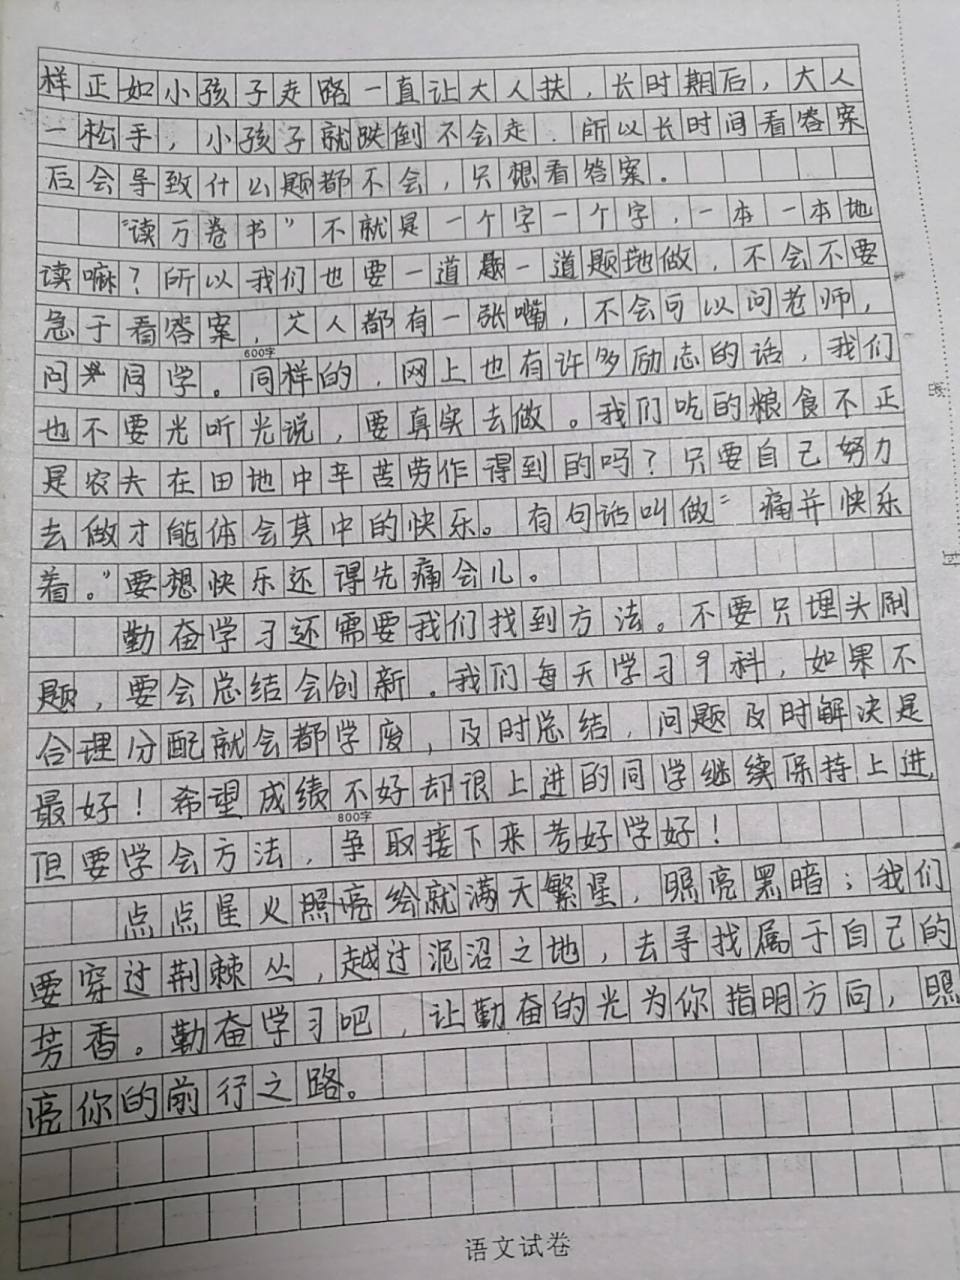 样正如小孩子走路一直让大人扶，长时期后，大人
一松手，小孩子就跌倒不会走．所以长时间看答案
后会导致什么题都不会，只想看答案．
“读万卷书”不就是一个字一个字，一本一本地
读嘛？所以我们也要一道题一道题地做，不会不要
急于看答案，人都有一张嘴，不会可以问老师，
600字
问同学。同样的，网上也有许多励志的话，我们
也不要光听光说，要真实去做。我们吃的粮食不正
是农夫在田地中辛苦劳作得到的吗？只要自己努力
去做才能体会其中的快乐。有句话叫做“痛并快乐
着。”要想快乐还得先痛会儿。
勤奋学习还需要我们找到方法。不要只埋头刷
题，要会总结会创新．我们每天学习9科，如果不
合理分配就会都学废，及时总结，问题及时解决是
最好！希望成绩不好却很上进的同学继续保持上进，
800字
但要学会方法，争取接下来考好学好！
点点星火照亮绘就满天繁星，照亮黑暗；我们
要穿过荆棘丛，越过泥沼之地，去寻找属于自己的
芳香。勤奋学习吧，让勤奋的光为你指明方向，照
亮你的前行之路。
语文试卷